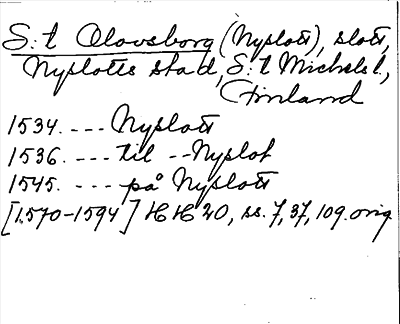 S:t Olovsborg (Nyslott), slott,
Nyslotts stad, S:t Michels l.,
Finland
1534. --- Nyslott
1536. --- til -- Nyslot
1545. ---- på Nyslott
[1570-1594] HH 20, ss. 7, 37, 109. orig.